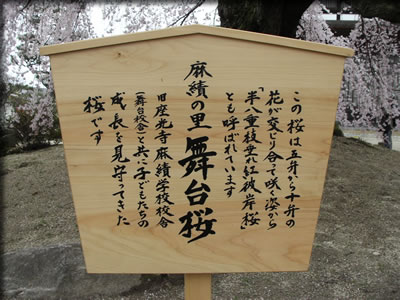 この桜は五弁から十弁の
花が交ざり合て咲く姿から
「半八重枝垂れ紅彼岸桜」
とも呼ばれています
麻績の里
舞台桜
旧座光寺麻績学校校舎
(舞台校舎)と共に子どもたちの
成長を見守ってきた
桜です